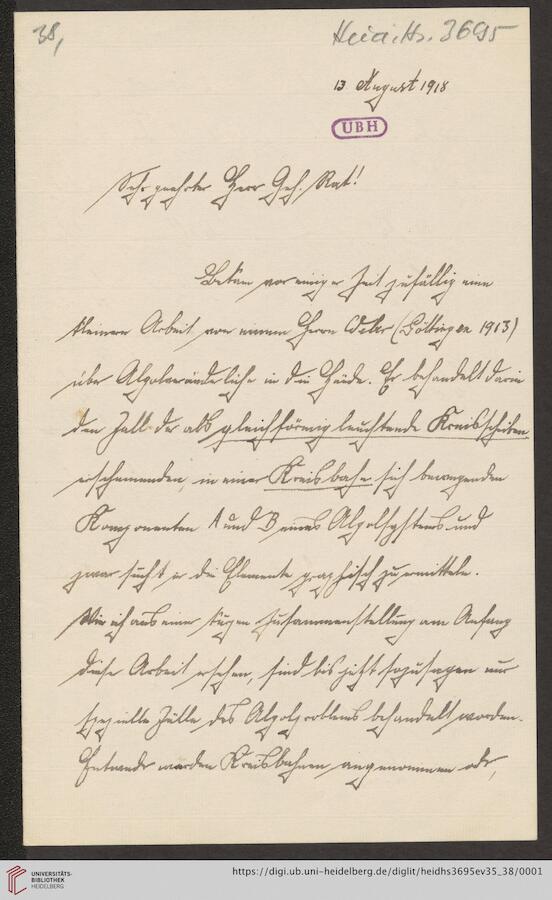 38,
Heid. Hs. 3695
13 August 1918
UBH
Sehr geehrter Herr Geh. Rat!
Bekam vor einiger Zeit zufällig eine
kleinere Arbeit von einem Herrn (Göttingen 1913)
über Algolveränderliche in die Hände. Er behandelt darin
den Fall der als gleichförmig leuchtende Kreisscheiben
erscheinenden, in einer Kreisbahn sich bewegenden
Komponenten A und B eines Algolsystems und
zwar sucht er die Elemente graphisch zu ermitteln.
Wie ich aus einer Zusammenstellung am Anfang
dieser Arbeit ersehen, sind bis jetzt sozusagen nur
spezielle Fälle des Algolproblems behandelt worden.
Entweder werden Kreisbahnen angenommen oder,
UNIVERSITÄTS-
BIBLIOTHEK
HEIDELBERG
https://digi.ub.uni-heidelberg.de/diglit/heidhs3695ev35_38/0001